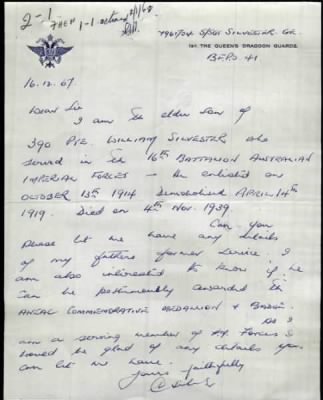 2-1
1-1
S/Sgt SILVESTER
1st THE QUEEN'S DRAGOON GUARDS.
B.F.P.O 41
16.12.67
Dear Sir
I am the elder son of
390 PTE. WILLIAM SILVESTER who
served in the 16th BATTALION AUSTRALIAN
IMPERIAL FORCES - He enlisted on
OCTOBER 13th 1914 demobilised APRIL 14th
1919. Died on 4th Nov. 1939.
Can you
please let me have any details
of my fathers former service. I
am also interested to know if he
can be posthumously awarded the
ANZAC COMMEMORATIVE MEDALLION & BADGE.
As I
am a serving member of H.M Forces I
would be glad of any details you
can let me have.
Yours faithfully